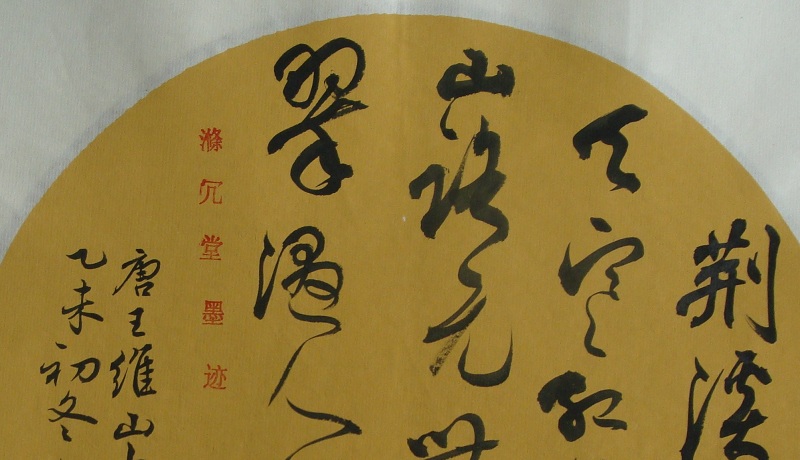 荆溪
天寒红
山路元
翠湿人
滌冗堂墨迹
唐王维山
乙未初冬